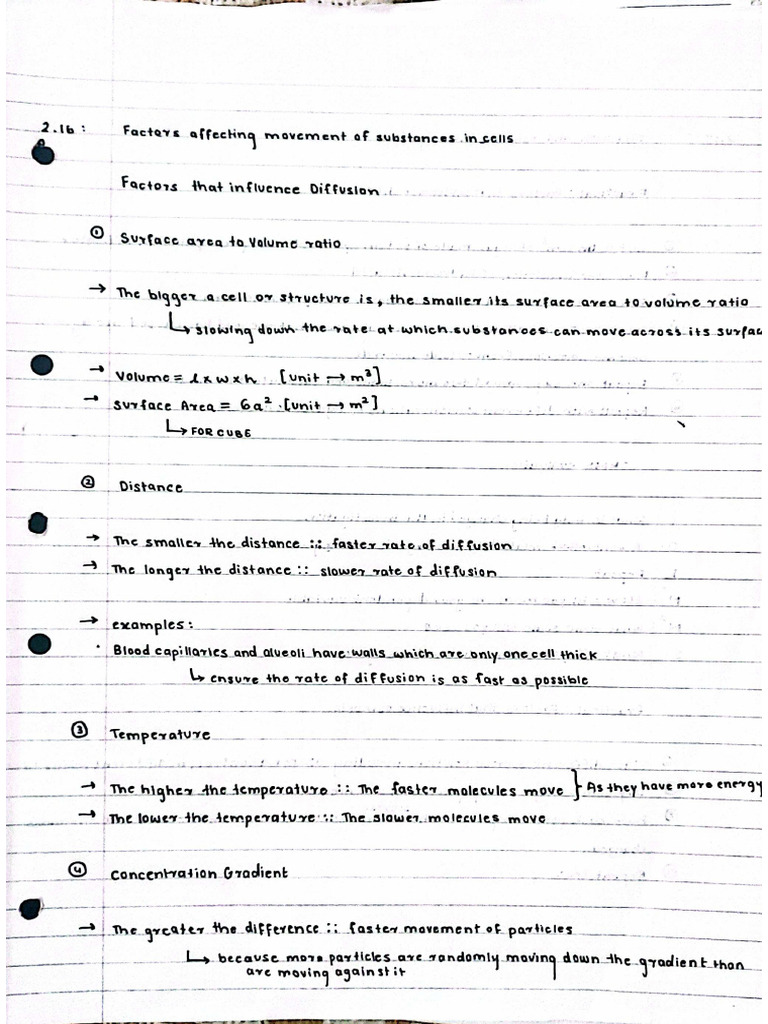 2.16: Factors affecting movement of substances in cells
Factors that influence Diffusion
① Surface area to Volume ratio
→ The bigger a cell or structure is, the smaller its surface area to volume ratio
↳ slowing down the rate at which substances can move across its surfac
→ Volume = l x w x h [unit → m³]
→ Surface Area = 6a² [unit → m²]
↳ FOR CUBE
② Distance
→ The smaller the distance :: faster rate of diffusion
→ The longer the distance :: slower rate of diffusion
→ examples:
· Blood capillaries and alveoli have walls which are only one cell thick
↳ ensure the rate of diffusion is as fast as possible
③ Temperature
→ The higher the temperature :: The faster molecules move } As they have more energy
→ The lower the temperature :: The slower molecules move
④ Concentration Gradient
→ The greater the difference :: faster movement of particles
↳ because more particles are randomly moving down the gradient than
are moving against it